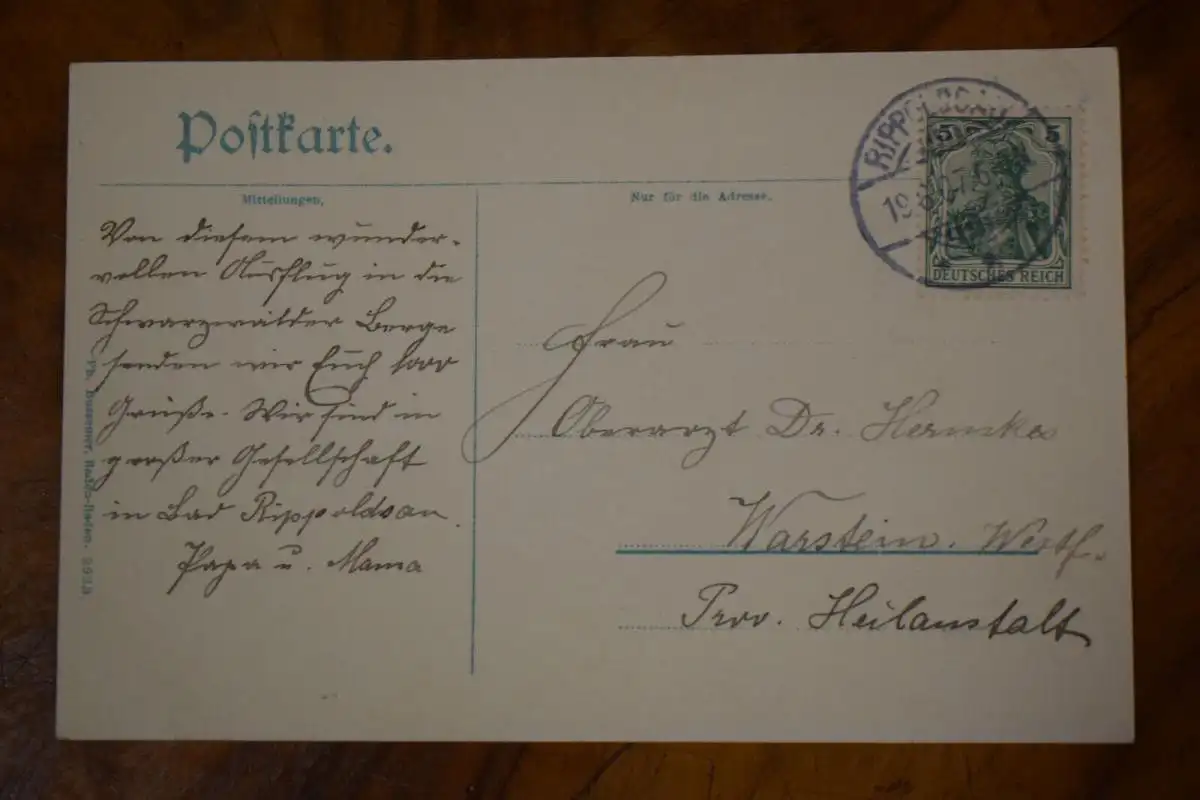 Postkarte.
Mitteilungen.
Nur für die Adresse.
Von diesem wunder-
vollen Ausflug in die
Schwarzwälder Berge
senden wir Euch 1000
Grüße. Wir sind in
großer Gesellschaft
in Bad Rippoldsau.
Papa u. Mama
Frau
Oberarzt Dr. Hermkes
Warstein. Westf.
Prov. Heilanstalt
RIPPOLDSAU
5 5
DEUTSCHES REICH
Baden-Baden.